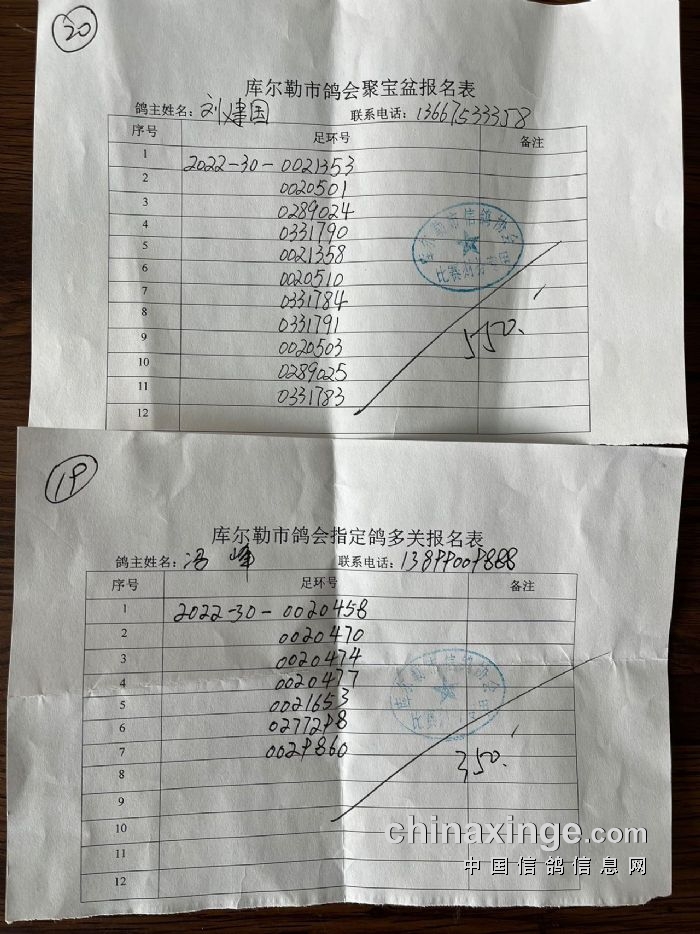 20
库尔勒市鸽会聚宝盆报名表
鸽主姓名：刘建国 联系电话：13667533358
序号 足环号 备注
1 2022-30-0021353
2 0020501
3 0289024
4 0331790
5 0021358
6 0020510
7 0331784
8 0331791
9 0020503
10 0289025
11 0331783
12
库尔勒市信鸽协会
550.
19
库尔勒市鸽会指定鸽多关报名表
鸽主姓名：冯峰 联系电话：13899009888
序号 足环号 备注
1 2022-30-0020458
2 0020470
3 0020474
4 0020477
5 0021653
6 0277298
7 0029860
8
9
10
11
12
库尔勒市信鸽协会
350.
chinaxinge.com
中国信鸽信息网